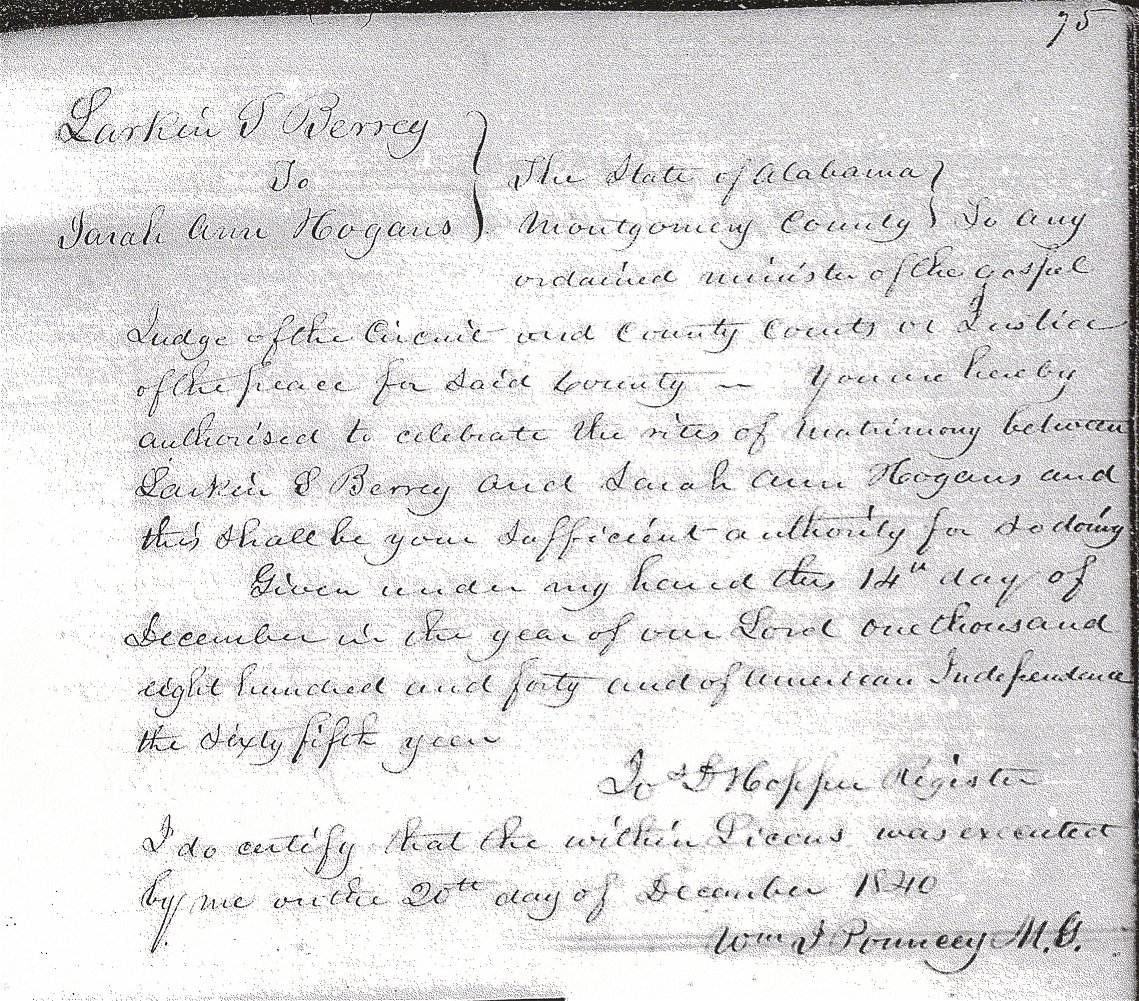 75
Larkin S Berrey
To
Sarah Ann Hogans
The State of Alabama
Montgomery County } To any
ordained minister of the gospel
Judge of the Circuit and County Courts or Justice
of the peace for said County — You are hereby
authorised to celebrate the rites of matrimony between
Larkin S Berrey and Sarah Ann Hogans and
this shall be your sufficient authority for so doing
Given under my hand this 14th day of
December in the year of our Lord one thousand
eight hundred and forty and of American Independance
the sixty fifth year
Hopper Register
I do certify that the within Licens was executed
by me on the 20th day of December 1840
Wm J Pouncey M.G.